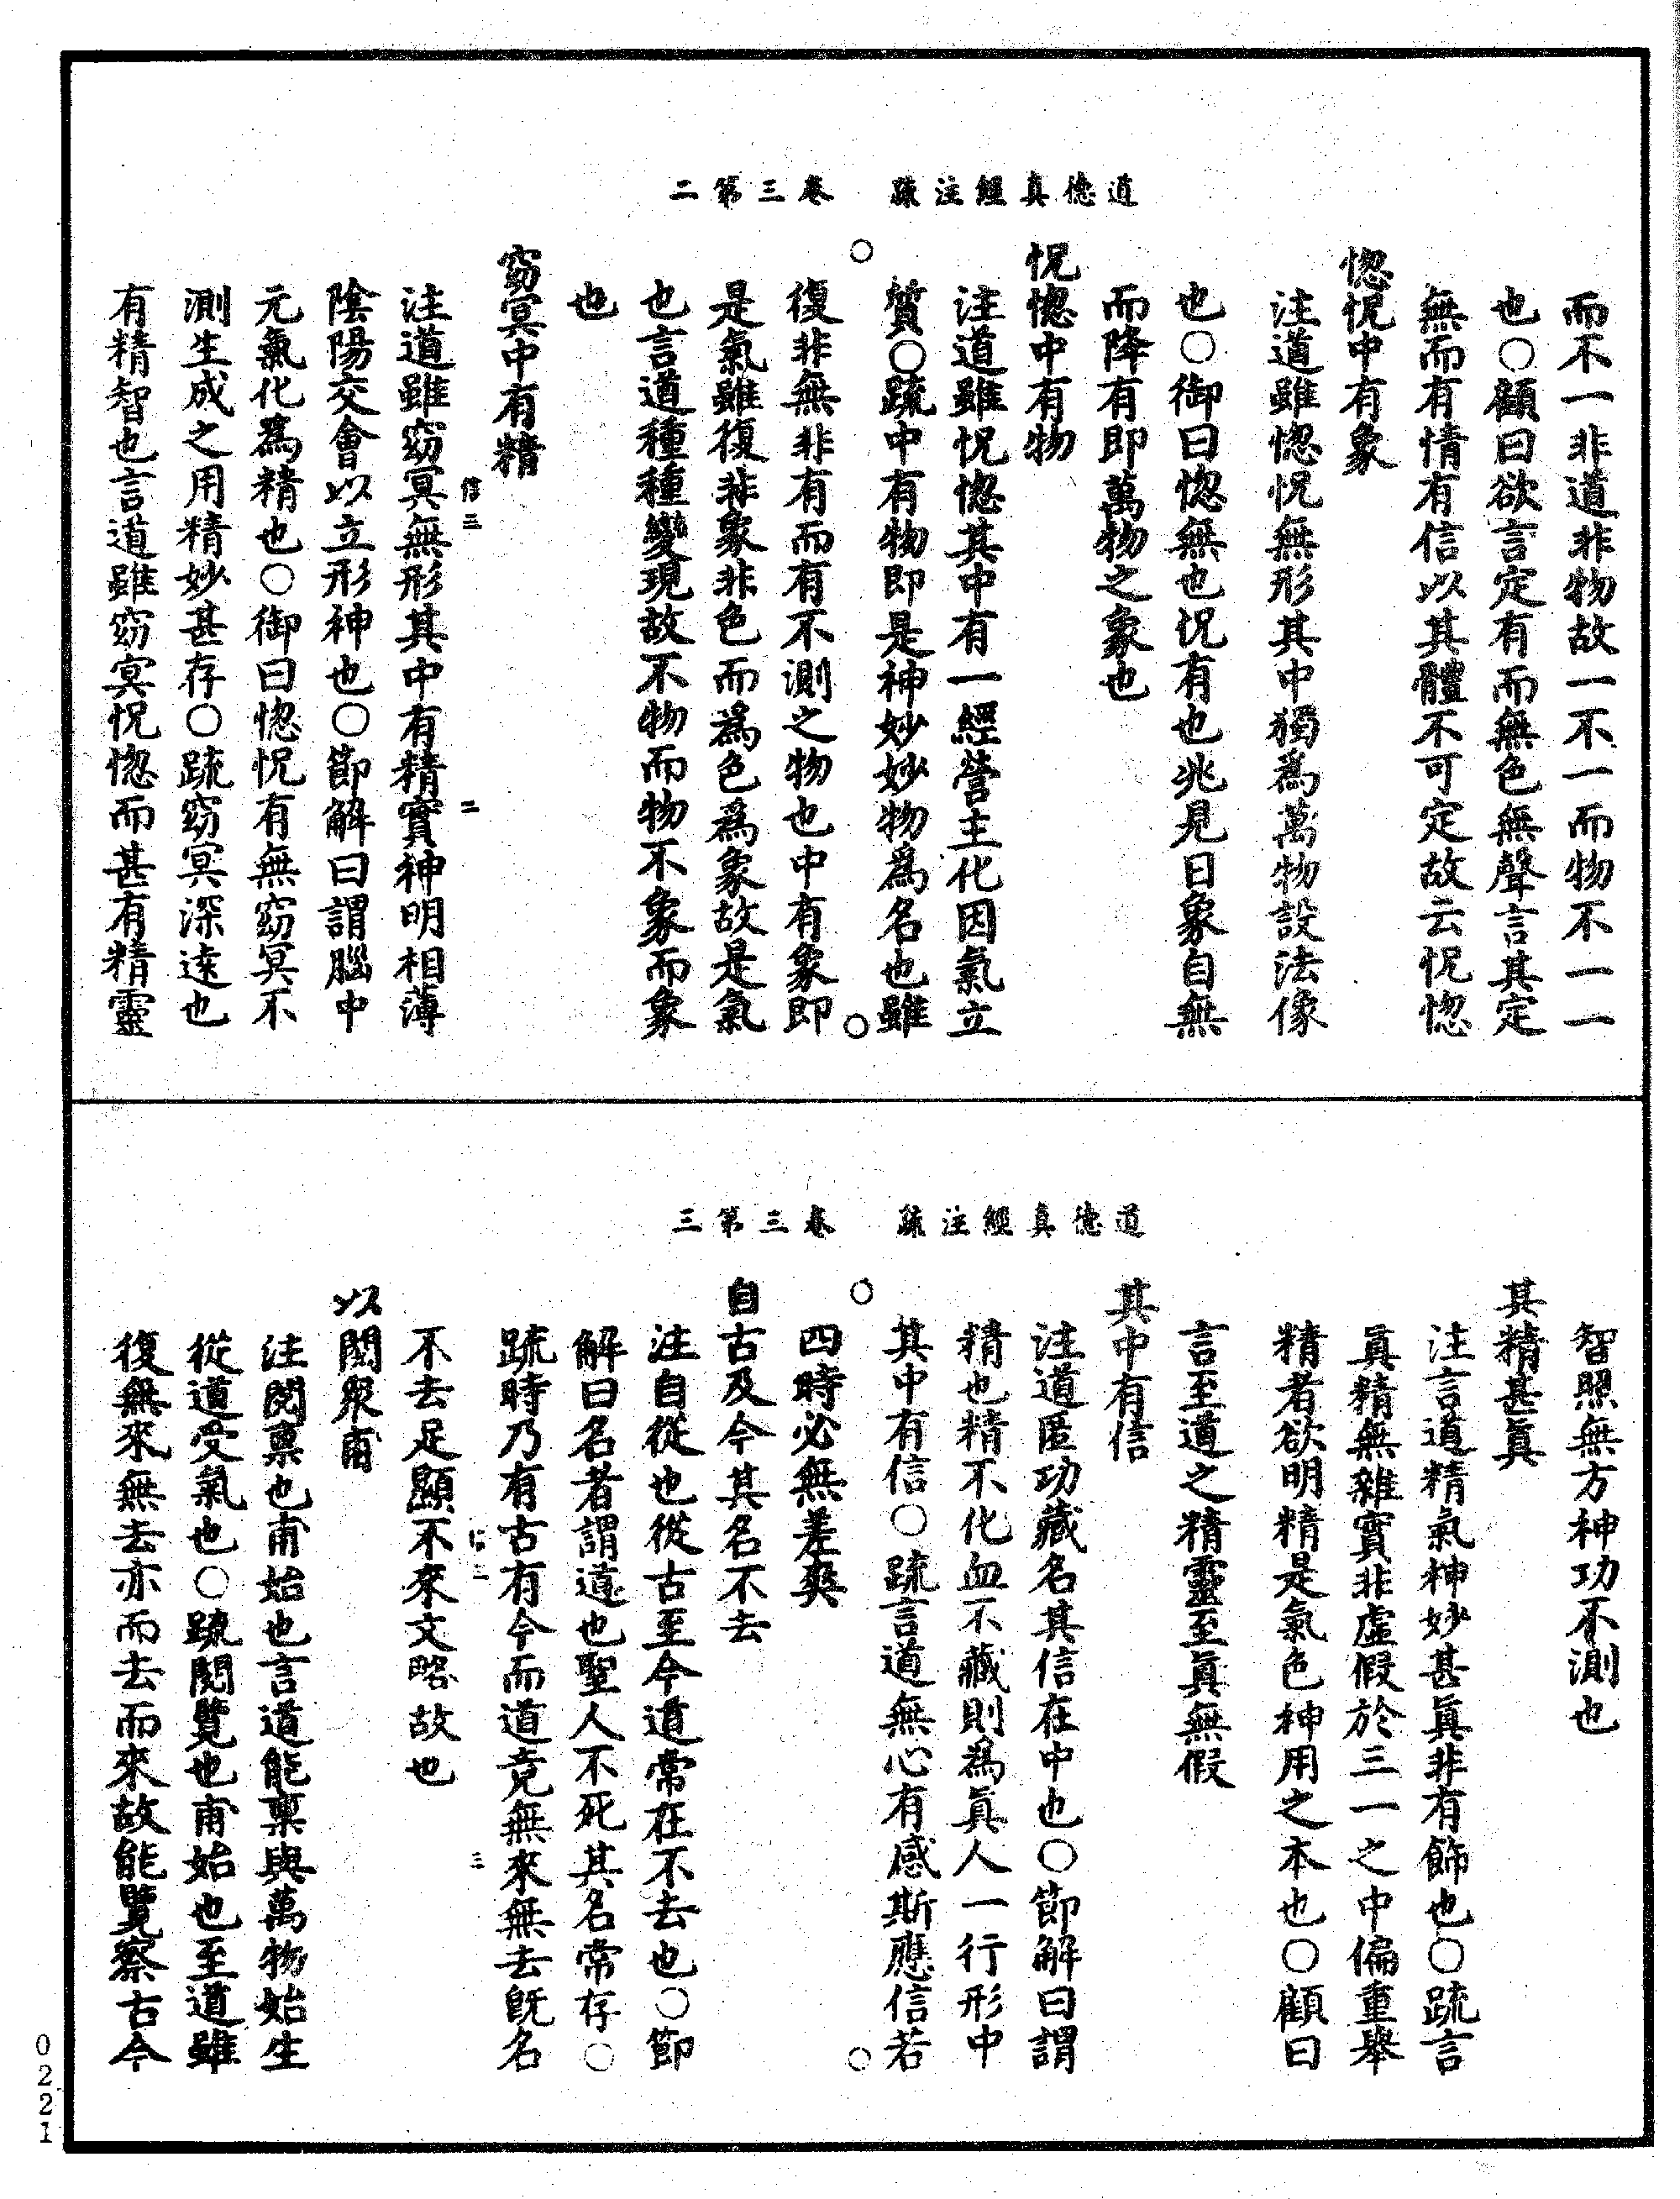 道德真經注疏　卷三第二
而不一非道非物故一不一而物不一一
也○顧曰欲言定有而無色無聲言其定
無而有情有信以其體不可定故云怳惚
惚怳中有象
注道雖惚怳無形其中獨為萬物設法像
也○御曰惚無也怳有也兆見曰象自無
而降有即萬物之象也
怳惚中有物
注道雖怳惚其中有一經營主化因氣立
質○疏中有物即是神妙妙物為名也雖
復非無非有而有不測之物也中有象即
是氣雖復非象非色而為色為象故是氣
也言道種種變現故不物而物不象而象
也
窈冥中有精
信三　二
注道雖窈冥無形其中有精實神明相薄
陰陽交會以立形神也○節解曰謂腦中
元氣化為精也○御曰惚怳有無窈冥不
測生成之用精妙甚存○疏窈冥深遠也
有精智也言道雖窈冥怳惚而甚有精靈
道德真經注疏　卷三第三
智照無方神功不測也
其精甚真
注言道精氣神妙甚真非有飾也○疏言
真精無雜實非虛假於三一之中偏重舉
精者欲明精是氣色神用之本也○顧曰
言至道之精靈至真無假
其中有信
注道匿功藏名其信在中也○節解曰謂
精也精不化血不藏則為真人一行形中
其中有信○疏言道無心有感斯應信若
四時必無差爽
自古及今其名不去
注自從也從古至今道常在不去也○節
解曰名者謂道也聖人不死其名常存○
疏時乃有古有今而道竟無來無去既名
三
不去足顯不來文略故也
以閱眾甫
注閱稟也甫始也言道能稟與萬物始生
從道受氣也○疏閱覽也甫始也至道雖
復無來無去亦而去而來故能覽察古今
0221